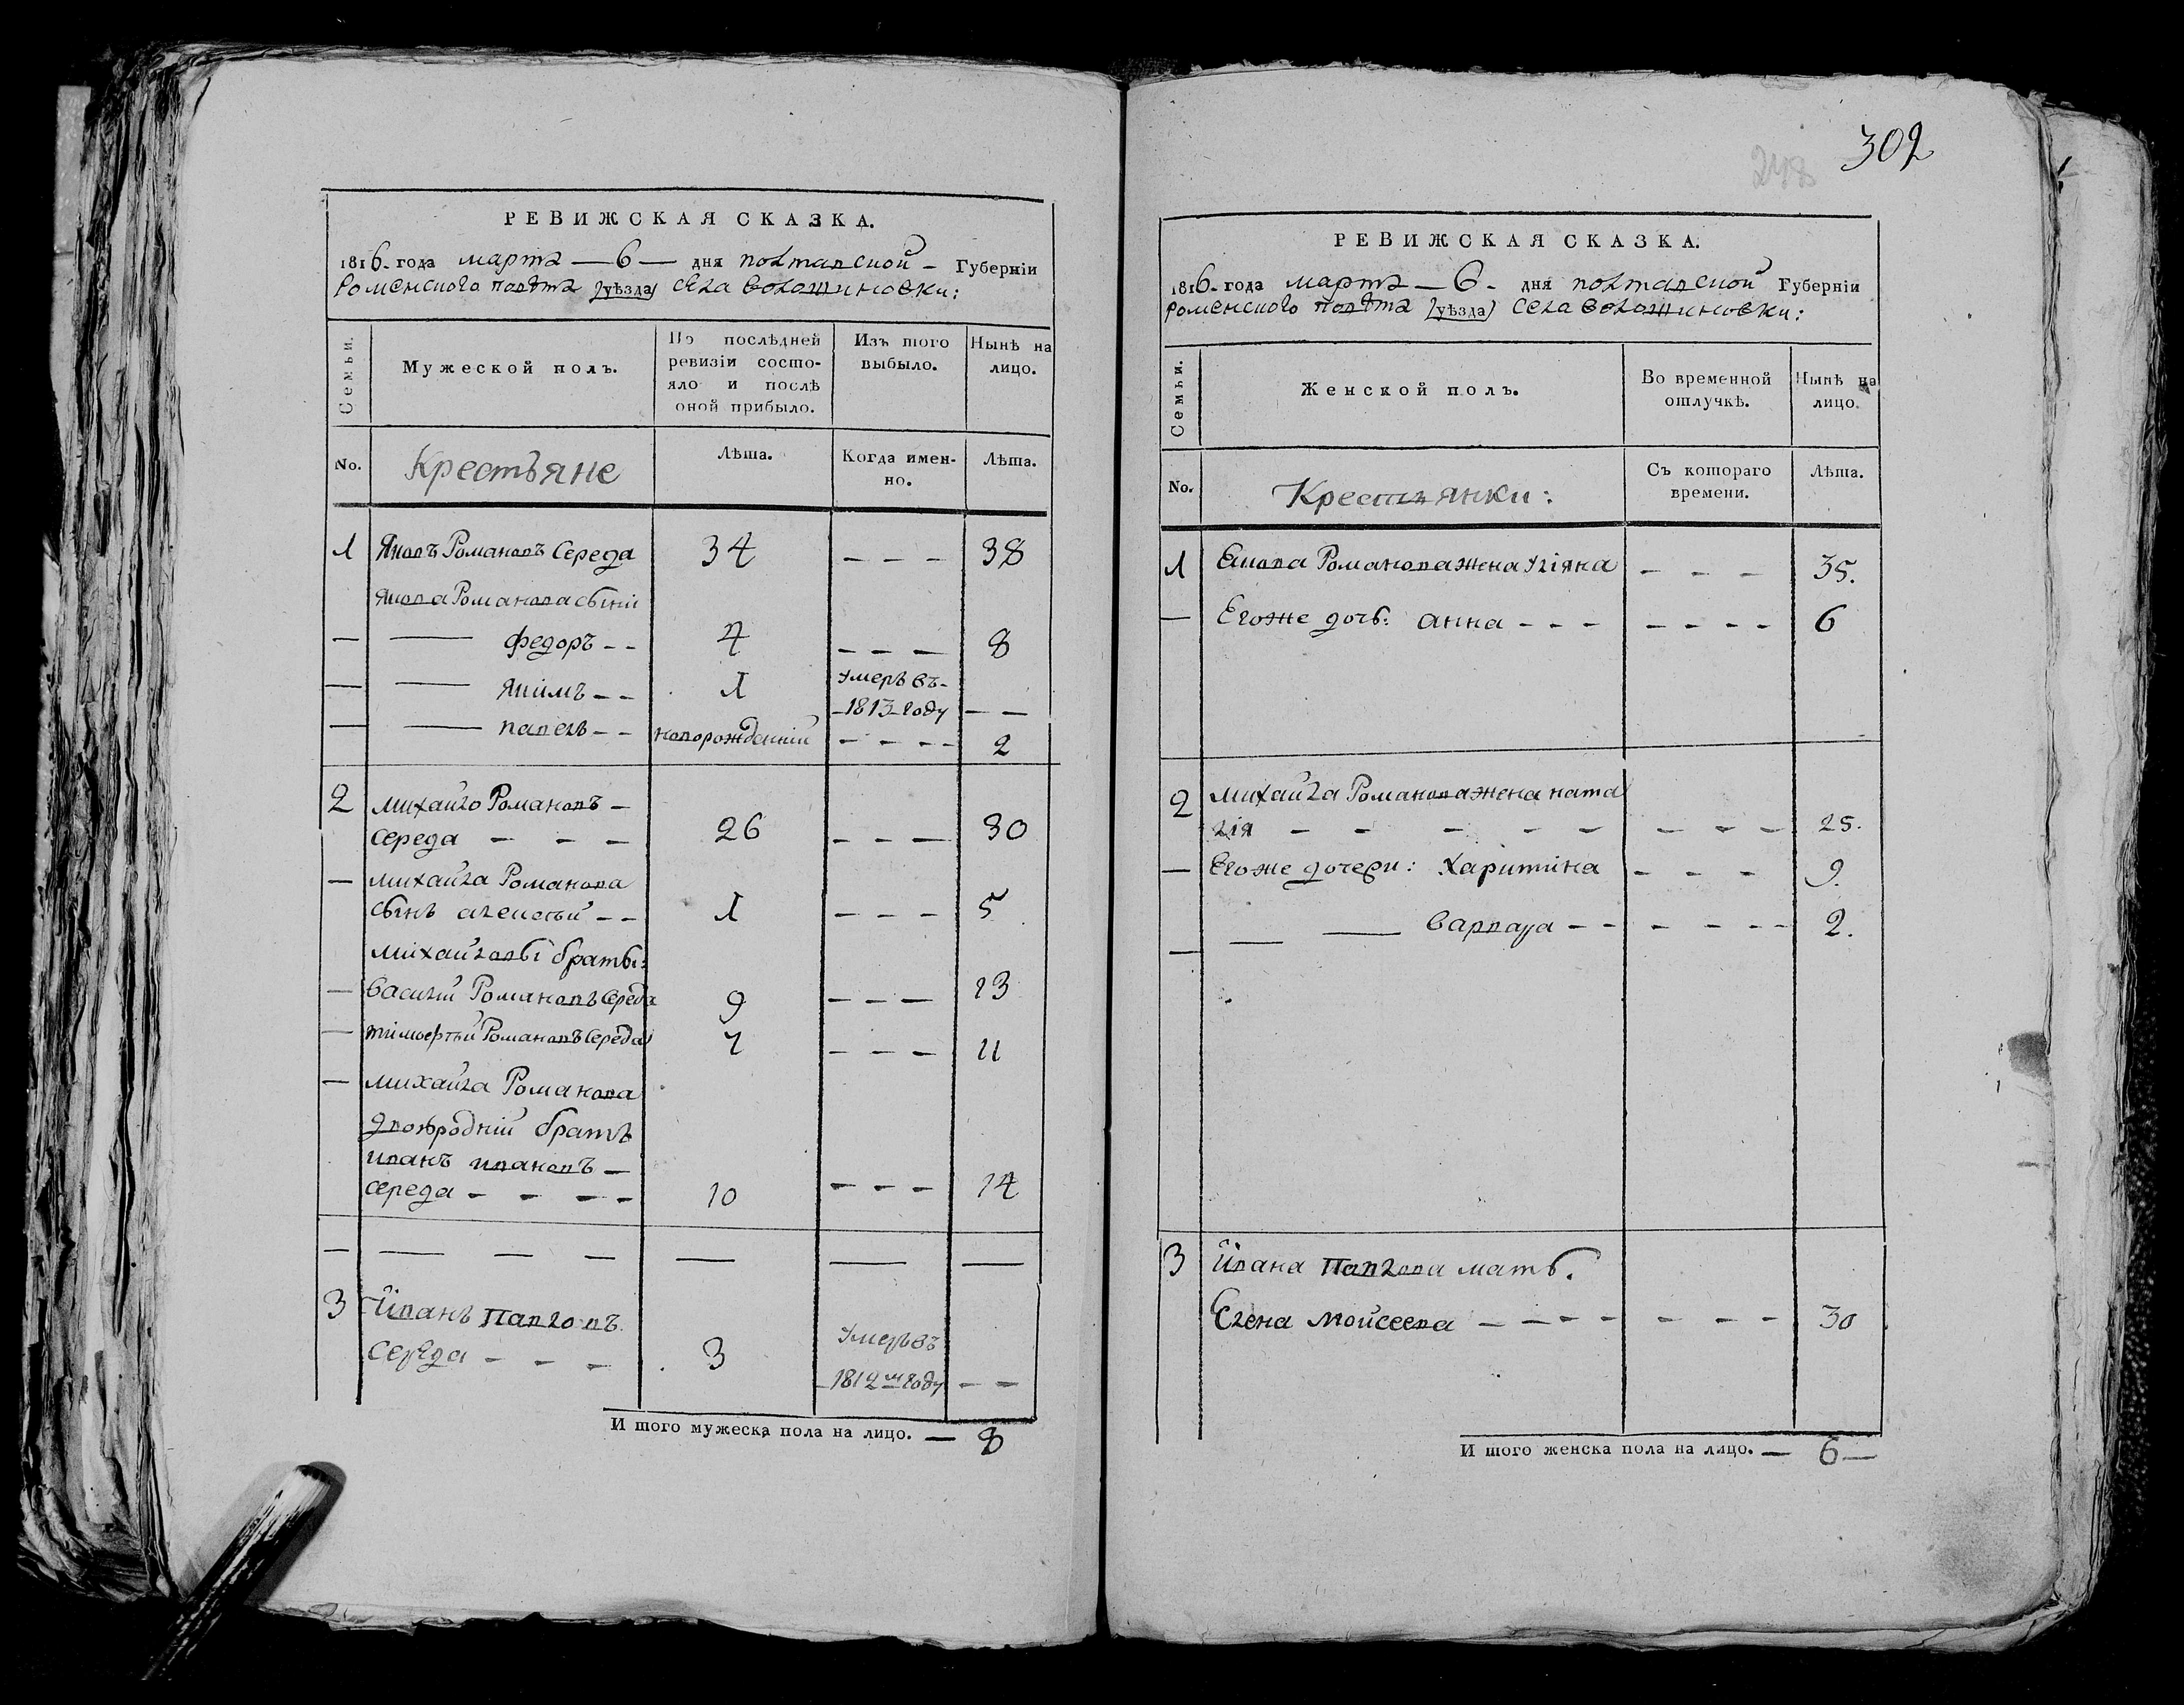 РЕВИЖСКАЯ СКАЗКА.
1816. года марта — 6 — дня полтавской - Губерніи
Роменского повѣта [уѣзда] села волошиновки:
Семьи.
Мужеской полъ.
По послѣдней
ревизіи состо-
яло и послѣ
оной прибыло.
Изъ того
выбыло.
Нынѣ на
лицо.
No.
Крестъяне
Лѣта.
Когда имен-
но.
Лѣта.
1 Яковъ Романовъ Середа 34 — — — 38
Якова Романова сыни
— —— федоръ — — 4 — — — 8
— —— якимъ — — 1 умеръ въ
1813 году — —
— —— павелъ — — новорожденній — — — — 2
2 михайло Романовъ —
середа — — — 26 — — — 30
— михайла Романова
сынъ алексѣй — — 1 — — — 5
михайловы братьі:
— василій Романовъ Середа 9 — — — 13
— тимофѣй Романовъ Середа 7 — — — 11
— михайла Романова
двоюродній братъ
иванъ ивановъ —
середа — — — — 10 — — — 14
— —— — — —— —— ——
3 Иванъ Павловъ
Середа — — — 3 умеръ въ
1812м году — —
И того мужеска пола на лицо. — 8
302
248
РЕВИЖСКАЯ СКАЗКА.
1816. года марта — 6 - дня полтавской Губерніи
роменского повѣта [уѣзда] села волошиновки:
Семьи.
Женской полъ.
Во временной
отлучкѣ.
Нынѣ на
лицо.
No.
Крестьянки:
Съ котораго
времени.
Лѣта.
1 Якова Романова жена Уліяна — — — 35.
— Егоже дочь: анна — — — — — — — 6
2 михайла Романова жена ната
лія — — — — — — — — — 25.
— Егоже дочери: Харитина — — — 9.
— — —— варвара — — — — — — 2.
3 Ивана Павлова мать.
Елена моисеева — — — — — — — — 30
И того женска пола на лицо. — 6 —